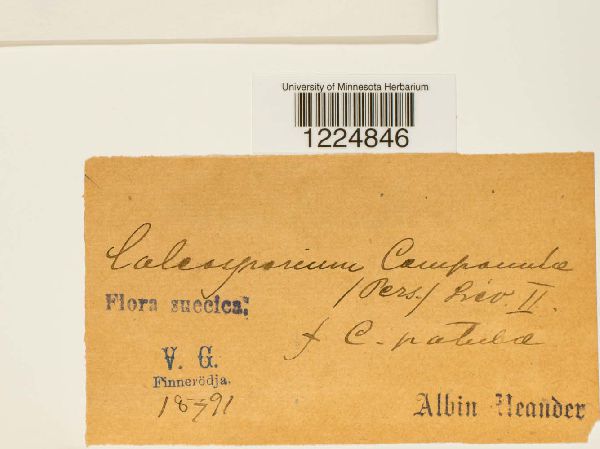 University of Minnesota Herbarium
1224846
Coleosporium Campanulæ
(Pers.) Lév. II.
Flora suecica;
f C. patula
V. G.
Finnerödja.
18 91
Albin Neander